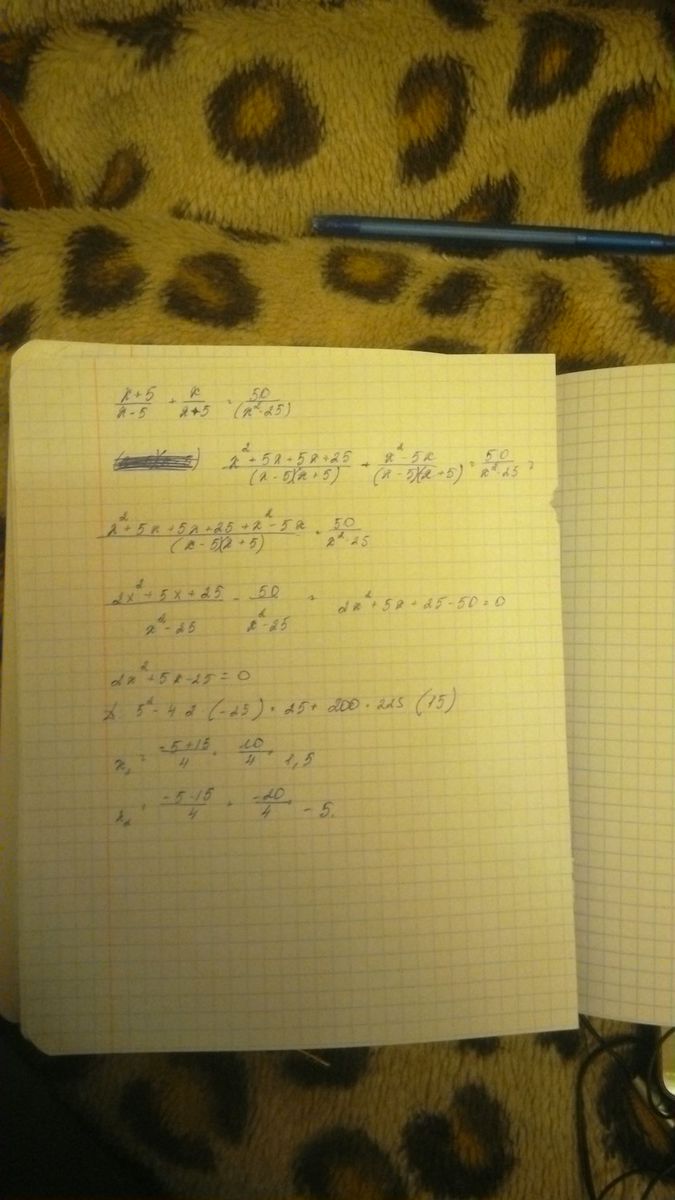 (x+5)/(x-5) + x/(x+5) = 50/(x²-25)
(x²+5x+5x+25)/((x-5)(x+5)) + (x²-5x)/((x-5)(x+5)) = 50/(x²-25) =
(x²+5x+5x+25+x²-5x)/((x-5)(x+5)) = 50/(x²-25)
(2x²+5x+25)/(x²-25) - 50/(x²-25) = 2x²+5x+25-50=0
2x²+5x-25=0
D= 5²-4·2·(-25) = 25+200=225 (15)
x₁ = (-5+15)/4 = 10/4 = 1,5
x₂ = (-5-15)/4 = -20/4 = -5.